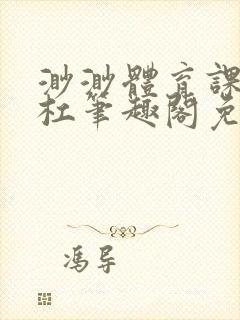 渺渺體育課
杜筆趣閣免
馮導